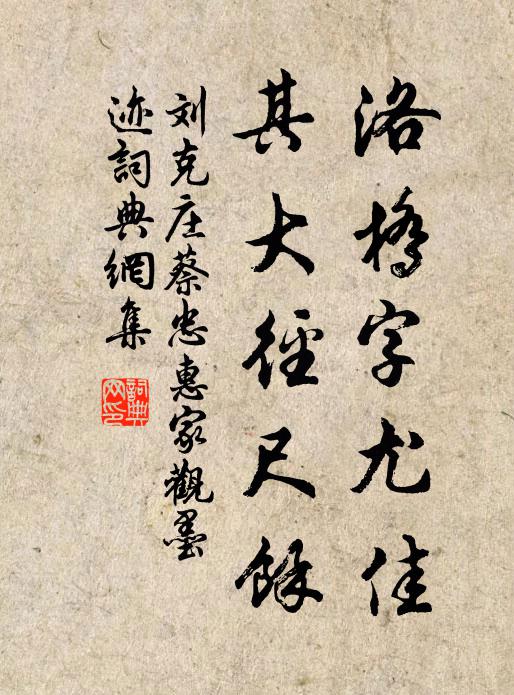 洛橋字尤佳
其大徑尺餘
刘克庄蔡忠惠家觀墨
迹詞典網集
詞典网印